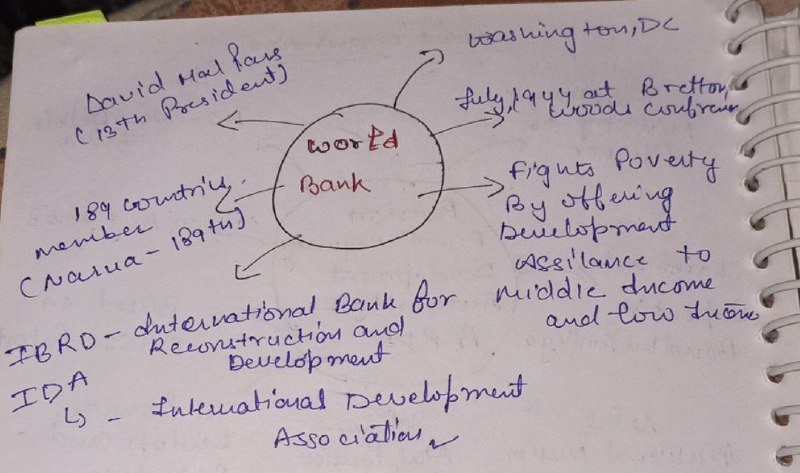 Washington, DC
David Mal Pass
(13th President)
July, 1944 at Bretton
woods Conferen
World
Bank
189 countries
member
(Narua - 189th)
Fights Poverty
By offering
Development
Assilance to
middle Income
and low Income
IBRD - International Bank for
Reconstruction and
Development
IDA
↳ - International Development
Association